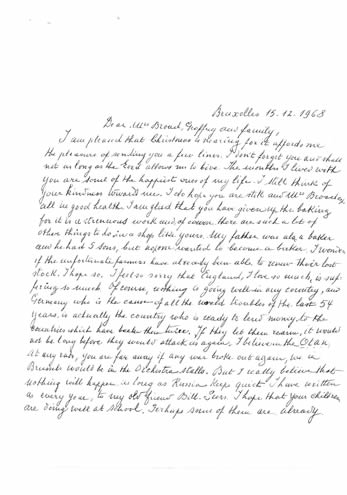 Bruxelles 15-12-1968
Dear Mrs Broad, Geoffrey and family,
I am pleased that Christmas is nearing for it affords me
the pleasure of sending you a few lines. I don't forget you and shall
not as long as the Lord allows me to live. The months I lived with
you are some of the happiest ones of my life. I still think of
your kindness towards me. I do hope you are still and Mrs
all in good health. I am glad that you have given up the baking
for it is a strenuous work and of there are such a lot of
other things to do in a shop like yours. My father was also a baker
and he had 5 sons, but no one wanted to become a baker. I wonder
if the unfortunate farmers have already been able to renew their lost
stock. I hope so. I feel so sorry that England, I love so much, is suf-
fering so much. Of course, nothing is going well in my country, and
Germany who is the cause of all the world troubles of the last 54
years, is actually the country who is ready to lend money to the
countries which have beaten them twice. If they let them rearm, it would
not be long before they would attack us again. I believe the
At any rate, you are far away if any war broke out again, we in
Brussels would be in the Orchestra stalls. But I really believe that
nothing will happen as long as Russia keeps quiet. I have written
as every year, to my old friend Bill. I hope that your children
are doing well at school. Perhaps some of them are already